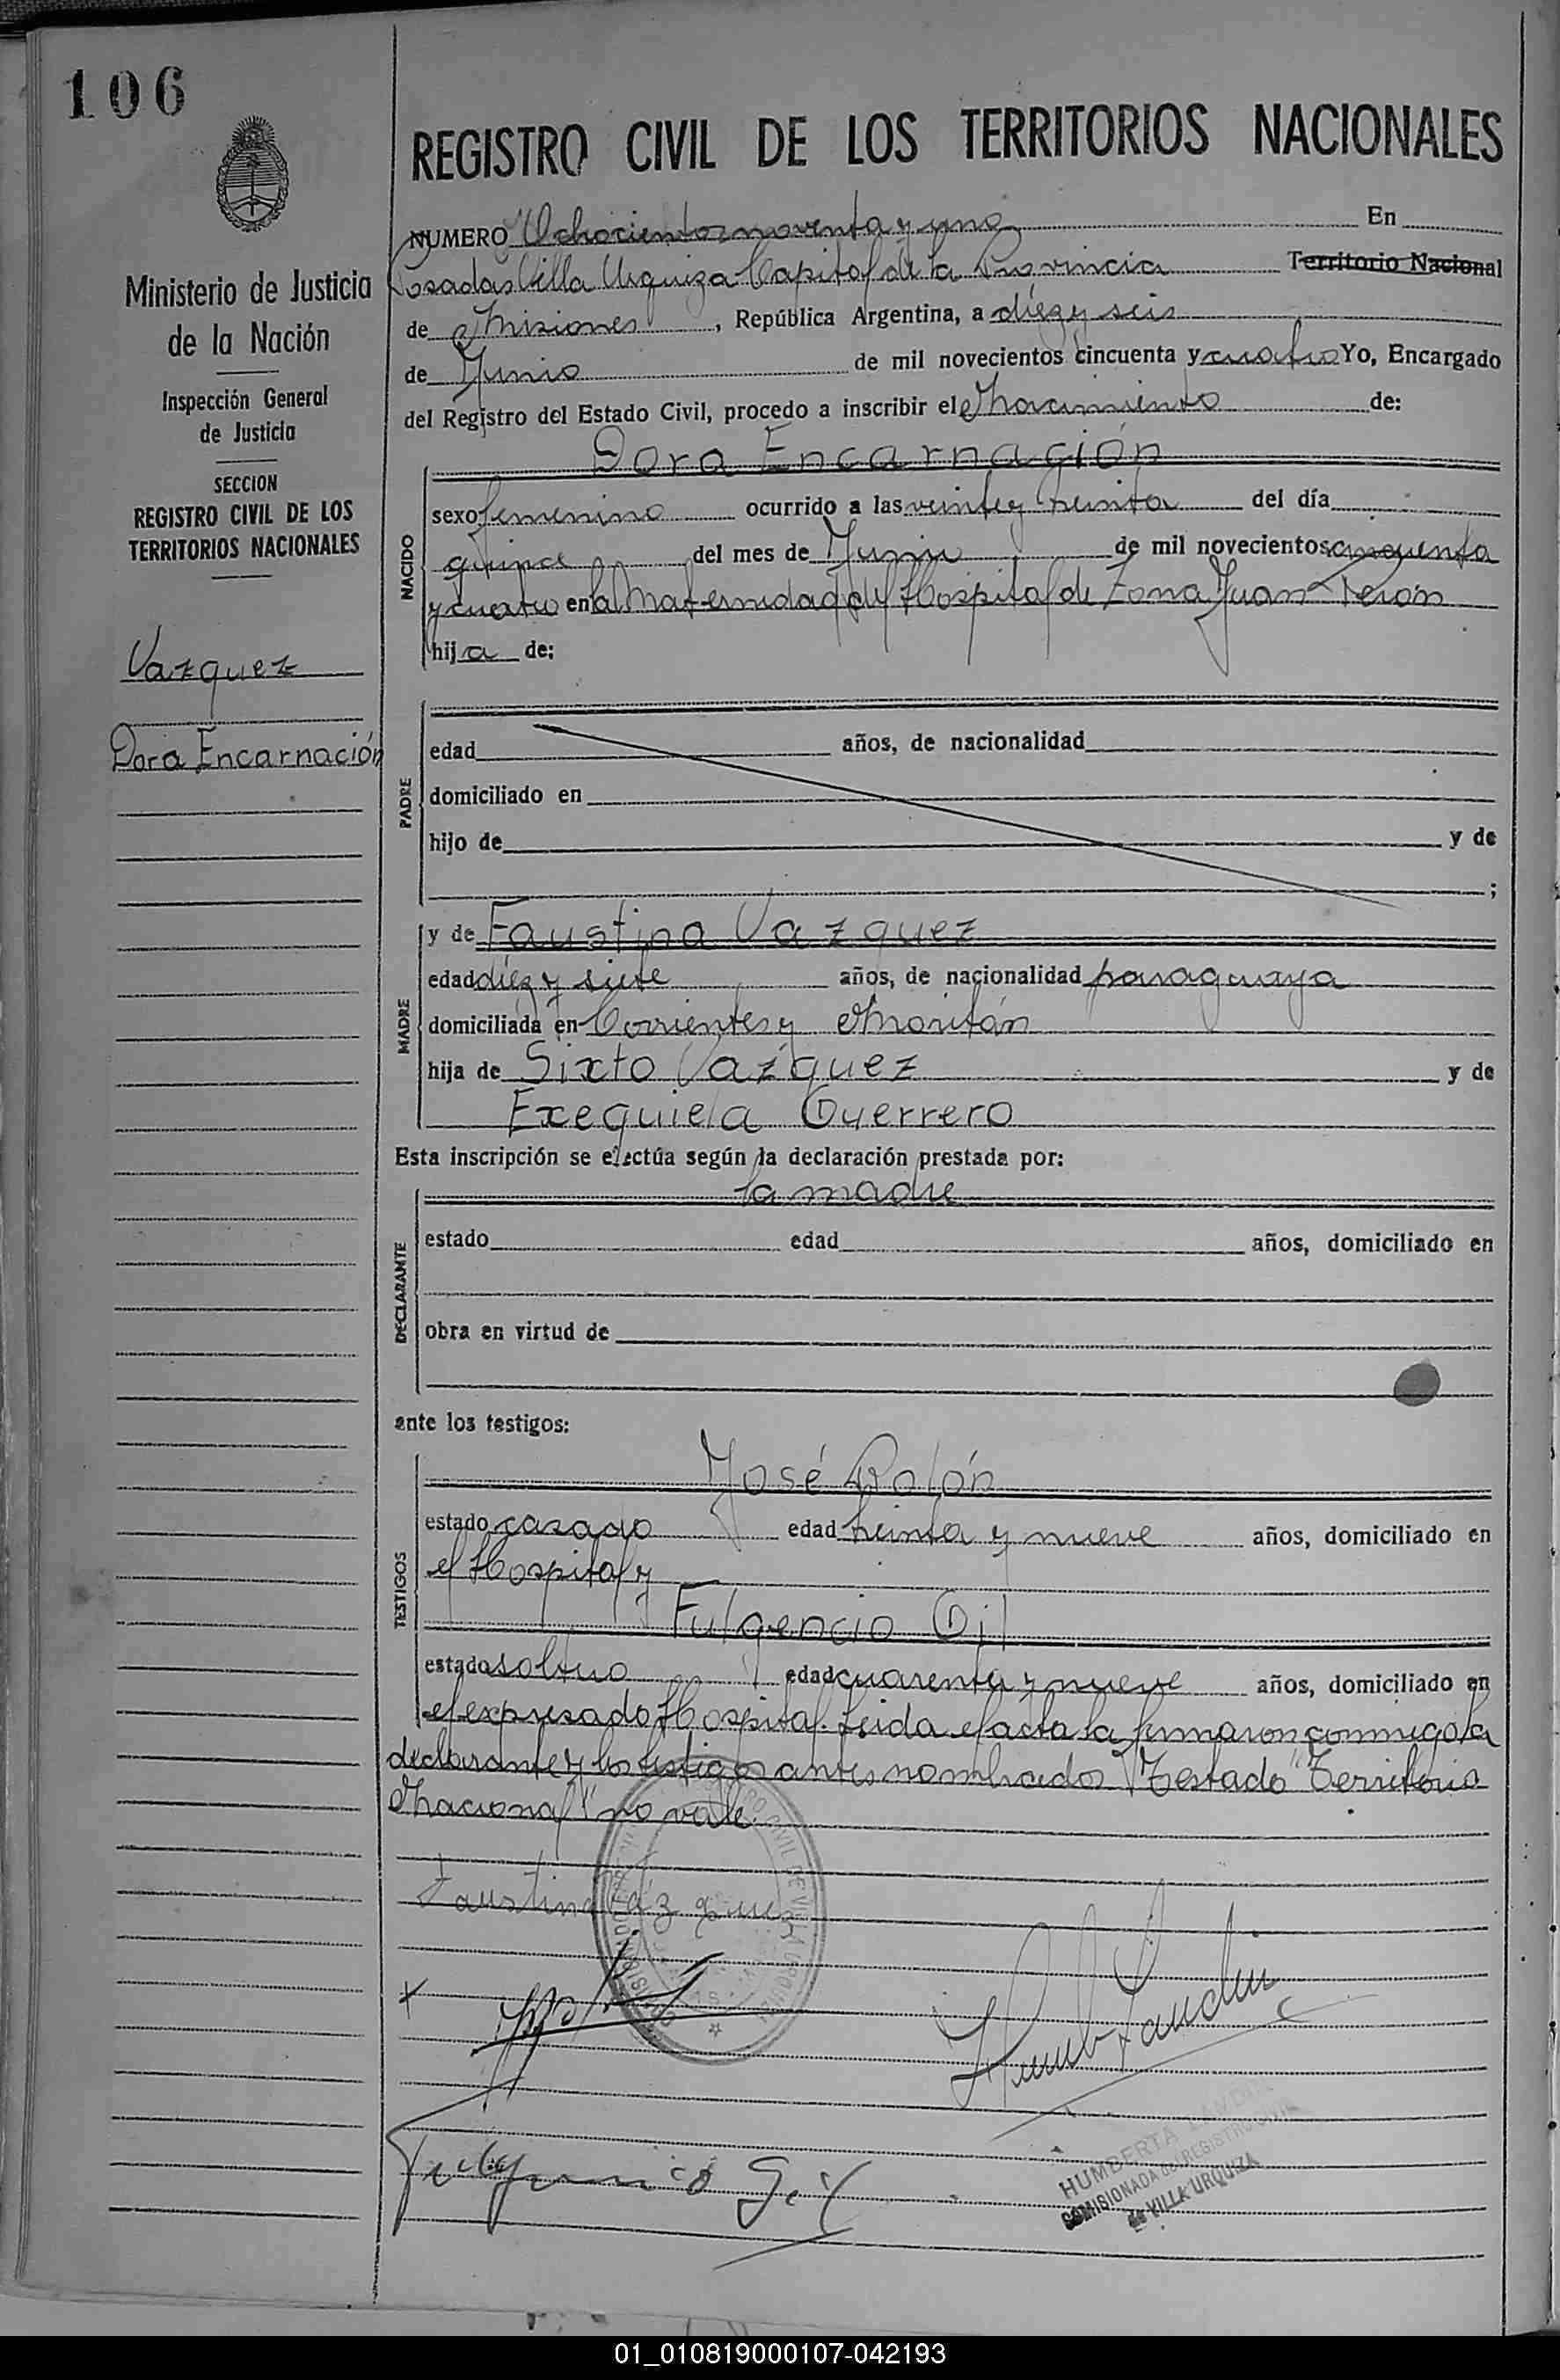 106
REGISTRO CIVIL DE LOS TERRITORIOS NACIONALES
Ministerio de Justicia
de la Nación
Inspección General
de Justicia
SECCION
REGISTRO CIVIL DE LOS
TERRITORIOS NACIONALES
Vazquez
Dora Encarnación
NUMERO Ochocientos noventa y uno En
Posadas Villa Urquiza Capital de la Provincia Territorio Nacional
de Misiones, República Argentina, a diez y seis
de Junio de mil novecientos cincuenta y cuatro Yo, Encargado
del Registro del Estado Civil, procedo a inscribir el Nacimiento de:
Dora Encarnación
NACIDO
sexo femenino ocurrido a las veinte y treinta del día
quince del mes de Junio de mil novecientos cincuenta
y cuatro en la Maternidad del Hospital de Zona Juan Perón
hija de:
PADRE
edad años, de nacionalidad
domiciliado en
hijo de y de
;
MADRE
y de Faustina Vazquez
edad diez y siete años, de nacionalidad paraguaya
domiciliada en Corrientes y
hija de Sixto Vazquez y de
Exequiela Guerrero
Esta inscripción se efectúa según la declaración prestada por:
la madre
DECLARANTE
estado edad años, domiciliado en
obra en virtud de
ante los testigos:
TESTIGOS
José Rolón
estado casado edad treinta y nueve años, domiciliado en
el Hospital y
Fulgencio Gil
estado soltero edad cuarenta y nueve años, domiciliado en
el expresado Hospital. Leida el acta la firmaron conmigo la
declarante y los testigos antes nombrados "Testado" Territorio
Nacional" no vale.
Faustina Vázquez
Fulgencio Gil
HUMBERTA LANDIN
COMISIONADA del REGISTRO CIVIL
de VILLA URQUIZA
01_010819000107-042193